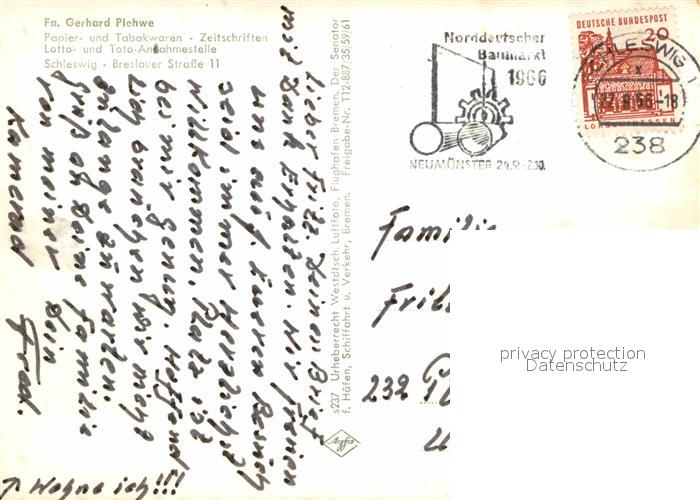 Fa. Gerhard Plehwe
Papier- und Tabakwaren - Zeitschriften
Lotto- und Toto-Annahmestelle
Schleswig - Breslauer Straße 11
Norddeutscher
Baumarkt
1966
NEUMÜNSTER 24.9.-2.10.
DEUTSCHE BUNDESPOST
20
SCHLESWIG 1
-18
238
s237 Urheberrecht Westdtsch. Luftfoto, Flughafen Bremen. Der Senator
f. Häfen, Schiffahrt u. Verkehr, Bremen. Freigabe-Nr. T12-887/35/59/61
Lieber Fritz. Deinen Brief
mit Dank Erhalten. Wir freuen
uns auf Eueren Besuch
seid immer Herzlichst
Willkommen. Platz ist
bei mir genug. Hoffend
Daß brauchen wir nicht
solange zu warten.
Grüß auch Deine Familie
von meiner Dein
Kamerad Fred.
↑ Wohne ich!!!
Familie
232
privacy protection
Datenschutz